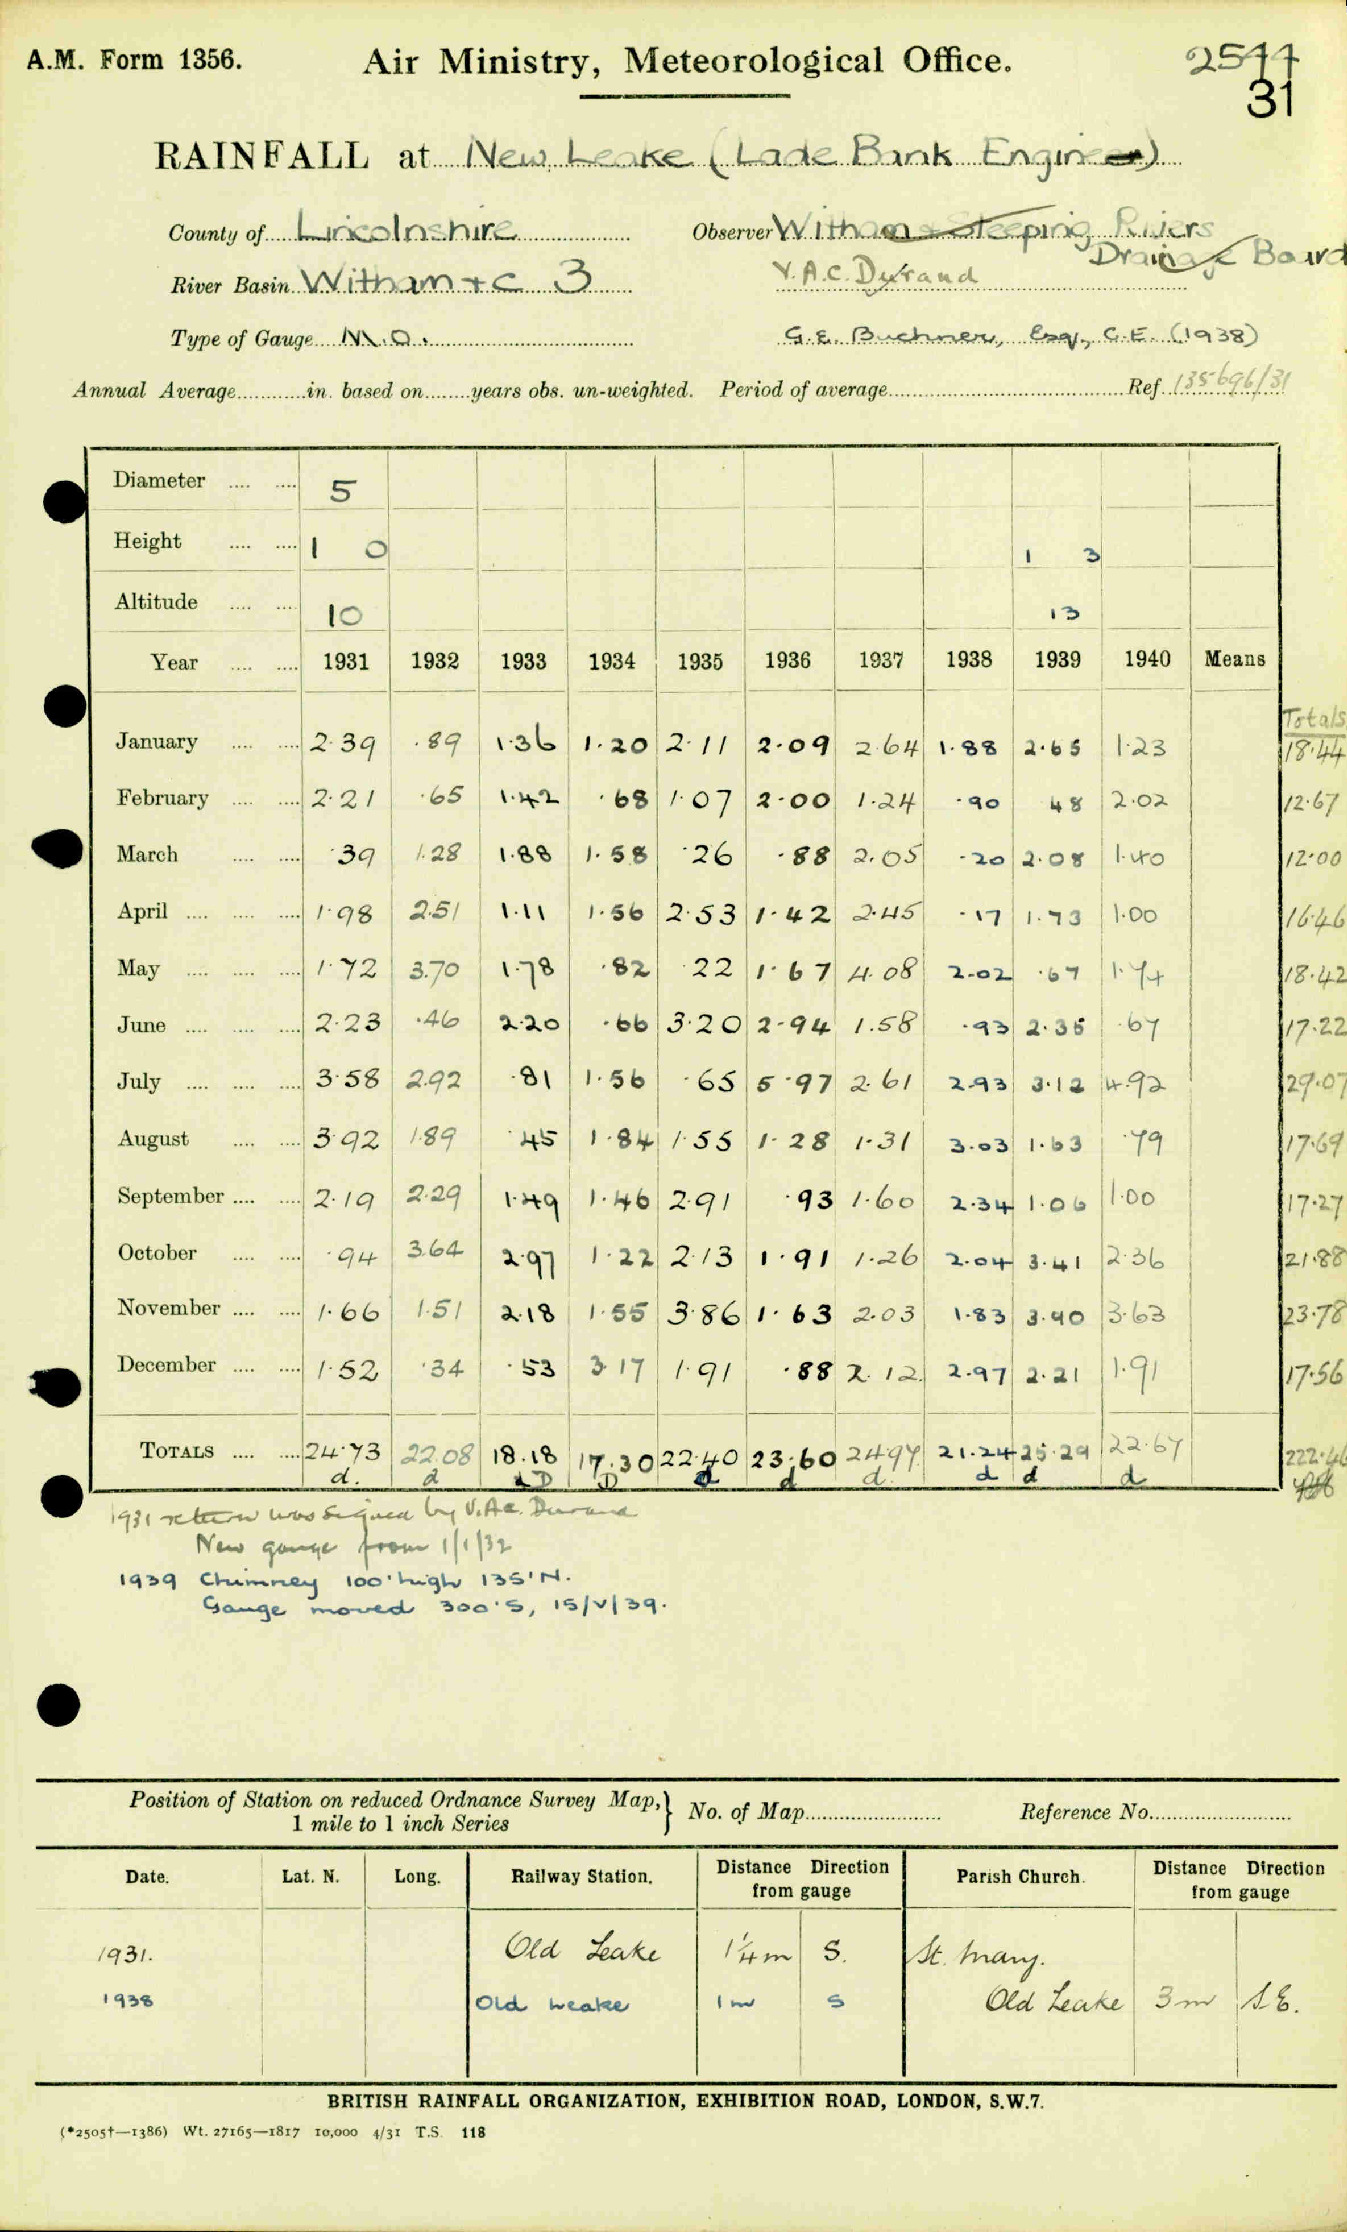 A.M. Form 1356.
Air Ministry, Meteorological Office.
31
RAINFALL at New Leake (Lade Bank Engine)
County of Lincolnshire
Observer Witham & Steeping Rivers
Drainage Board
River Basin Witham + C 3
V.A.C. Durand
Type of Gauge M.O.
G.E. Buchner, Esq., C.E. (1938)
Annual Average in. based on years obs. un-weighted. Period of average Ref. 135696/31
Diameter 5
Height 1 0 1 3
Altitude 10 13
Year 1931 1932 1933 1934 1935 1936 1937 1938 1939 1940 Means
Totals
January 2.39 .89 1.36 1.20 2.11 2.09 2.64 1.88 2.65 1.23 18.44
February 2.21 .65 1.42 .68 1.07 2.00 1.24 .90 48 2.02 12.67
March .39 1.28 1.88 1.58 .26 .88 2.05 .20 2.08 1.40 12.00
April 1.98 2.51 1.11 1.56 2.53 1.42 2.45 .17 1.73 1.00 16.46
May 1.72 3.70 1.78 .82 .22 1.67 4.08 2.02 .67 1.74 18.42
June 2.23 .46 2.20 .66 3.20 2.94 1.58 .93 2.35 .67 17.22
July 3.58 2.92 .81 1.56 .65 5.97 2.61 2.93 3.12 4.92 29.07
August 3.92 1.89 .45 1.84 1.55 1.28 1.31 3.03 1.63 .79 17.69
September 2.19 2.29 1.49 1.46 2.91 .93 1.60 2.34 1.06 1.00 17.27
October .94 3.64 2.97 1.22 2.13 1.91 1.26 2.04 3.41 2.36 21.88
November 1.66 1.51 2.18 1.55 3.86 1.63 2.03 1.83 3.90 3.63 23.78
December 1.52 .34 .53 3.17 1.91 .88 2.12 2.97 2.21 1.91 17.56
TOTALS 24.73 22.08 18.18 17.30 22.40 23.60 24.97 21.24 25.29 22.67 222.46
d. d D D d d d. d d d
1931 return was signed by V.A.C. Durand
New gauge from 1/1/32
1939 Chimney 100' high 135' N.
Gauge moved 300' S, 15/V/39.
Position of Station on reduced Ordnance Survey Map,
1 mile to 1 inch Series
No. of Map
Reference No.
Date. Lat. N. Long. Railway Station. Distance Direction from gauge Parish Church. Distance Direction from gauge
1931. Old Leake 1¼ m S. St. Mary.
1938 Old Leake 1 m S Old Leake 3 m S.E.
BRITISH RAINFALL ORGANIZATION, EXHIBITION ROAD, LONDON, S.W.7.
(*2505†—1386) Wt. 27165—1817 10,000 4/31 T.S. 118